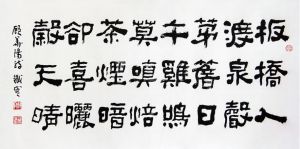 板橋人
渡泉聲
茅簷日
午雞鳴
莫嗔焙
茶煙暗
卻喜曬
穀天晴
顧華陽詩